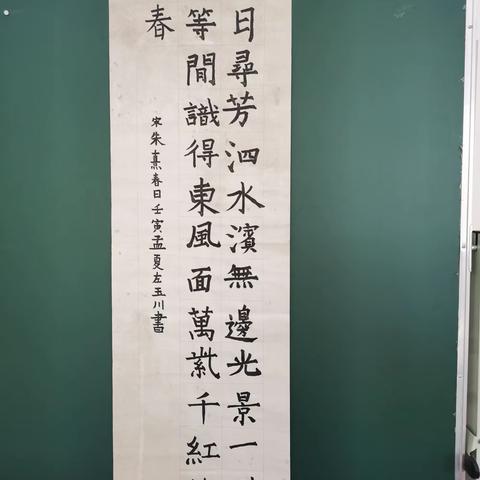 日尋芳泗水濱無邊光景一
等閒識得東風面萬紫千紅
春
宋朱熹春日壬寅孟夏左玉川書